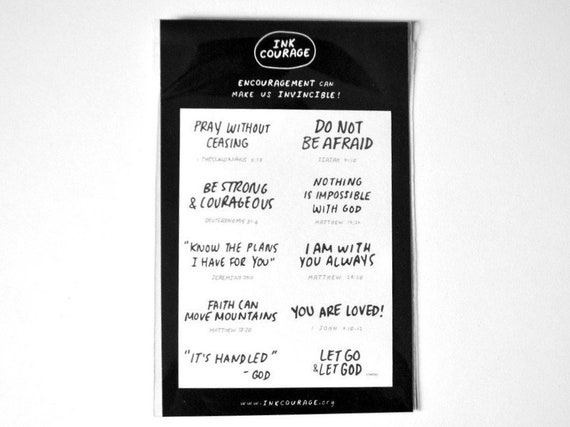 INK
COURAGE
ENCOURAGEMENT CAN
MAKE US INVINCIBLE!
PRAY WITHOUT
CEASING
1 THESSALONIANS 5:17
DO NOT
BE AFRAID
ISAIAH
BE STRONG
& COURAGEOUS
DEUTERONOMY 31:6
NOTHING
IS IMPOSSIBLE
WITH GOD
MATTHEW 19:26
"KNOW THE PLANS
I HAVE FOR YOU"
JEREMIAH 29:11
I AM WITH
YOU ALWAYS
MATTHEW 28:20
FAITH CAN
MOVE MOUNTAINS
MATTHEW 17:20
YOU ARE LOVED!
1 JOHN
"IT'S HANDLED"
- GOD
LET GO
& LET GOD
www.INKCOURAGE.org